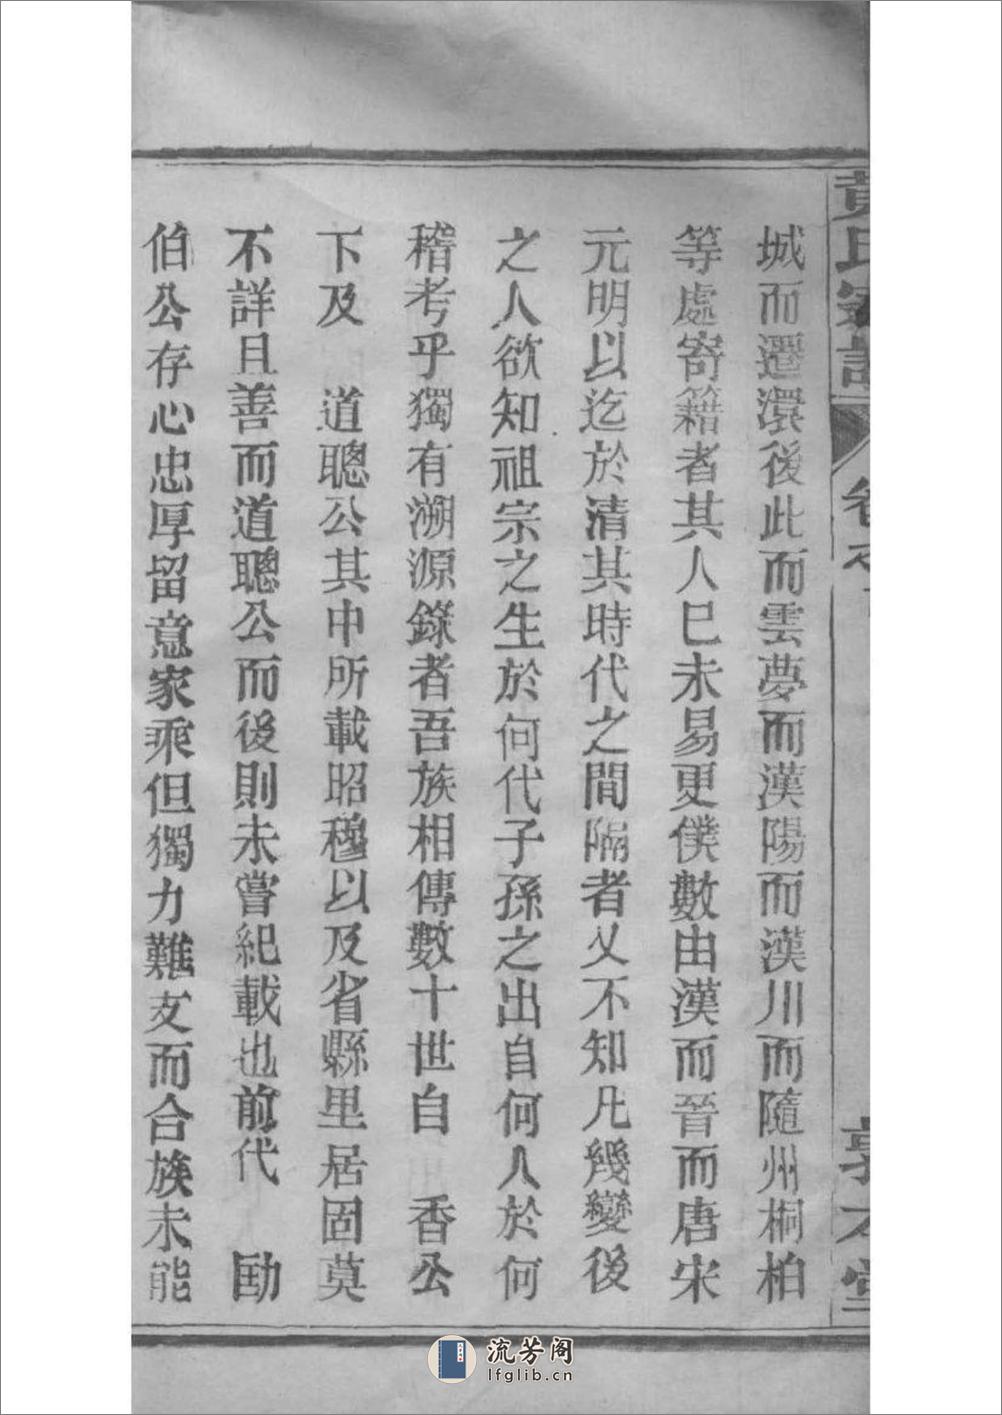 黃氏家譜 卷之 敦本堂
城而遷澴後此而雲夢而漢陽而漢川而隨州桐柏
等處寄籍者其人已未易更僕數由漢而晉而唐宋
元明以迄於清其時代之間隔者又不知凡幾變後
之人欲知祖宗之生於何代子孫之出自何人於何
稽考乎獨有溯源錄者吾族相傳數十世自 香公
下及 道聰公其中所載昭穆以及省縣里居固莫
不詳且善而道聰公而後則未嘗紀載也前代 勛
伯公存心忠厚留意家乘但獨力難支而合族未能
流芳阁
lfglib.cn